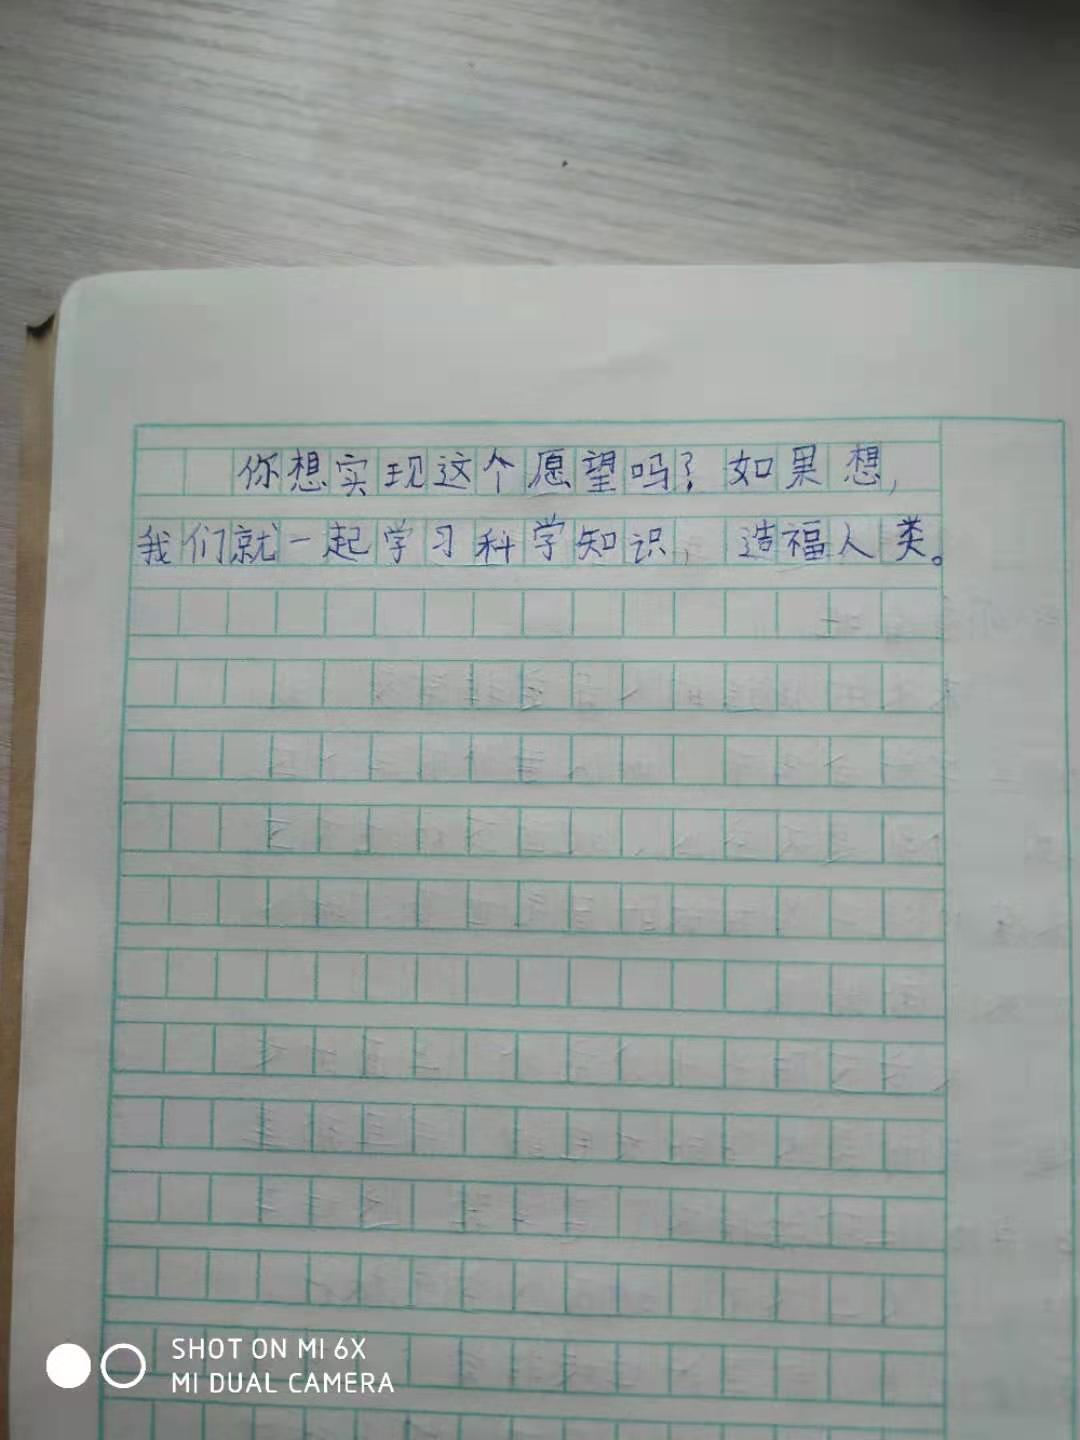 你想实现这个愿望吗?如果想,
我们就一起学习科学知识,造福人类。
SHOT ON MI 6X
MI DUAL CAMERA